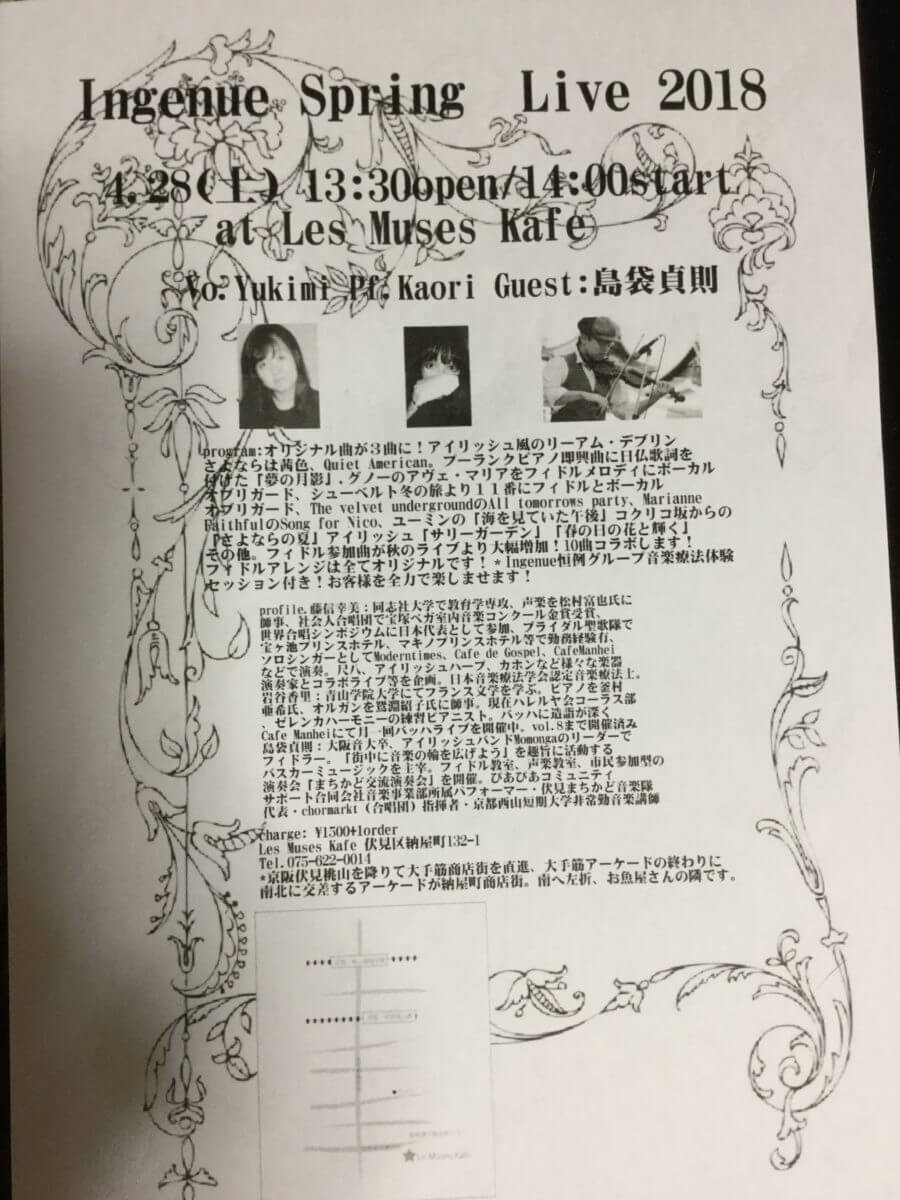 Ingenue Spring Live 2018
4.28(土) 13:30open/14:00start
at Les Muses Kafe
Vo:Yukimi Pf:Kaori Guest:島袋貞則
program:オリジナル曲が3曲に!アイリッシュ風のリーアム・デブリン
さよならは茜色、Quiet American。プーランクピアノ即興曲に日仏歌詞を
付けた『夢の月影』.グノーのアヴェ・マリアをフィドルメロディにボーカル
オブリガード、シューベルト冬の旅より11番にフィドルとボーカル
オブリガード、The velvet undergroundのAll tomorrows party、Marianne
FaithfulのSong for Nico、ユーミンの「海を見ていた午後」コクリコ坂からの
『さよならの夏』アイリッシュ『サリーガーデン』「春の日の花と輝く」
その他。フィドル参加曲が秋のライブより大幅増加!10曲コラボします!
フィドルアレンジは全てオリジナルです!*Ingenue恒例グループ音楽療法体験
セッション付き!お客様を全力で楽しませます!
profile.藤信幸美:同志社大学で教育学専攻、声楽を松村富也氏に
師事、社会人合唱団で宝塚ベガ室内音楽コンクール金賞受賞、
世界合唱シンポジウムに日本代表として参加、ブライダル聖歌隊で
宝ヶ池プリンスホテル、マキノプリンスホテル等で勤務経験有、
ソロシンガーとしてModerntimes、Cafe de Gospel、CafeManhei
などで演奏。尺八、アイリッシュハープ、カホンなど様々な楽器
演奏家とコラボライブ等を企画。日本音楽療法学会認定音楽療法士。
岩谷香里:青山学院大学にてフランス文学を学ぶ。ピアノを釜村
亜希氏、オルガンを鷲淵紹子氏に師事。現在ハレルヤ会コーラス部
、ゼレンカハーモニーの練習ピアニスト。バッハに造詣が深く
Cafe Manheiにて月一回バッハライブを開催中。vol.8まで開催済み
島袋貞則:大阪音大卒、アイリッシュバンドMomongaのリーダーで
フィドラー。「街中に音楽の輪を広げよう」を趣旨に活動する
バスカーミュージックを主宰。フィドル教室、声楽教室、市民参加型の
演奏会『まちかど交流演奏会』を開催。ぴあぴあコミュニティ
サポート合同会社音楽事業部所属パフォーマー・伏見まちかど音楽隊
代表・chormarkt(合唱団)指揮者・京都西山短期大学非常勤音楽講師
charge: ¥1500+1order
Les Muses Kafe 伏見区納屋町132-1
Tel.075-622-0014
*京阪伏見桃山を降りて大手筋商店街を直進、大手筋アーケードの終わりに
南北に交差するアーケードが納屋町商店街。南へ左折、お魚屋さんの隣です。
Le Muses Kafe